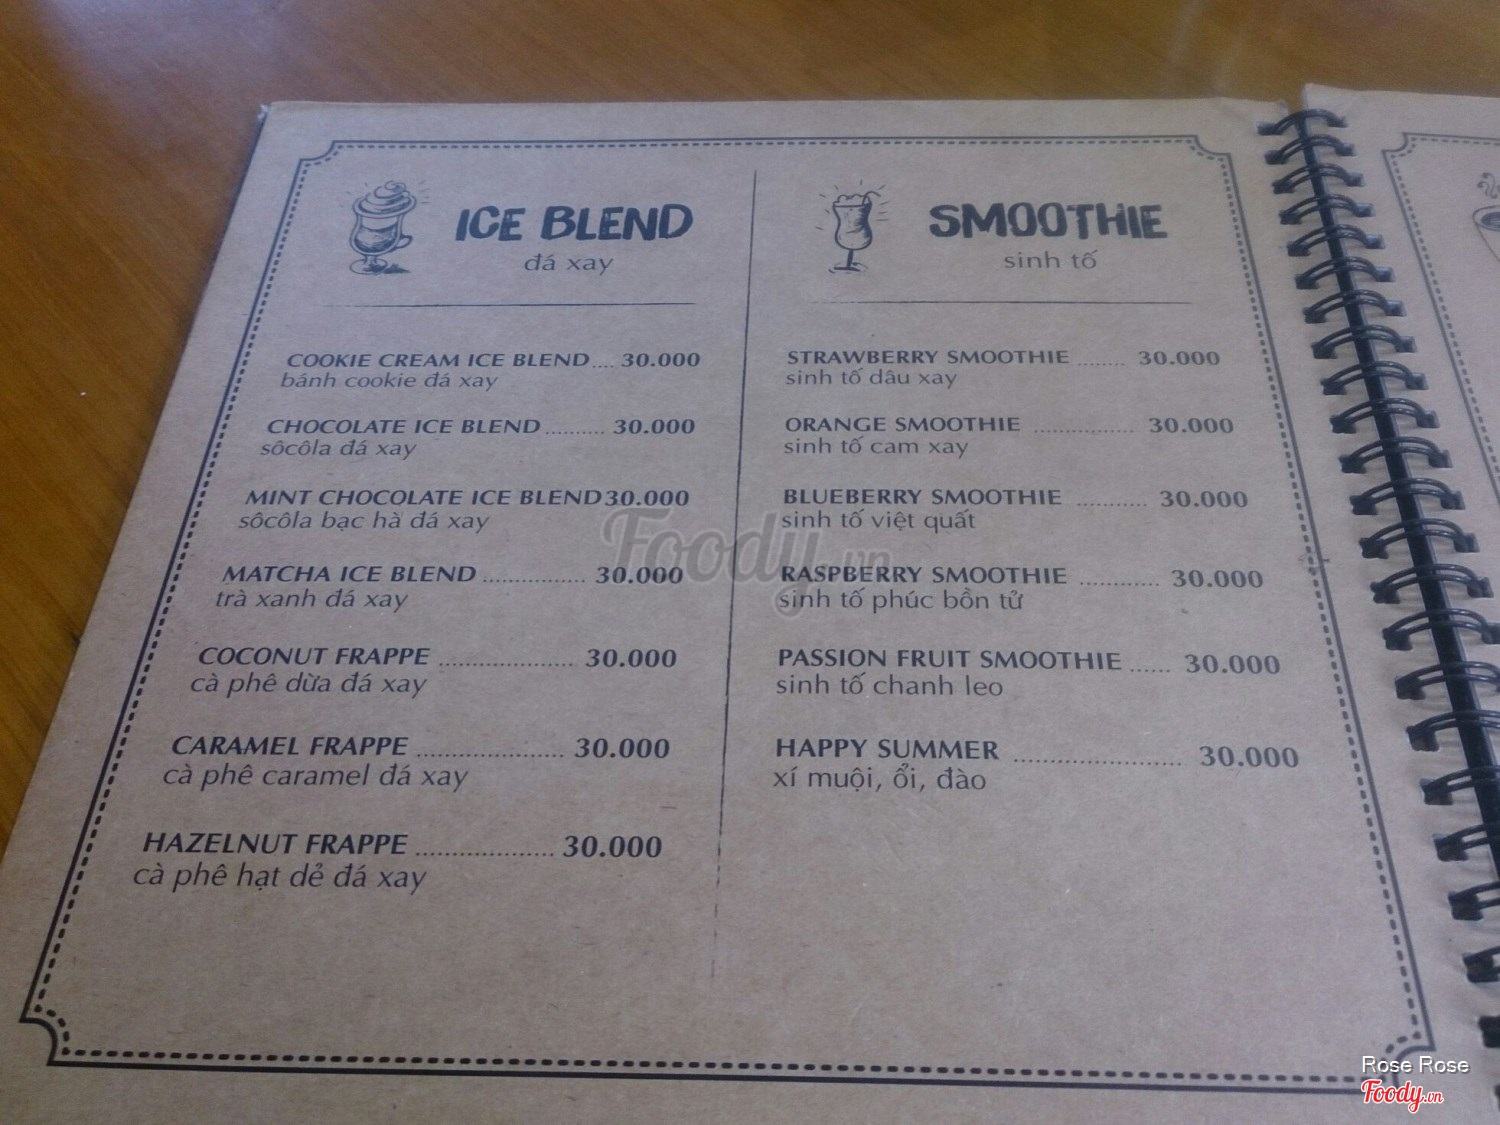 ICE BLEND
đá xay
COOKIE CREAM ICE BLEND.... 30.000
bánh cookie đá xay
CHOCOLATE ICE BLEND .......... 30.000
sôcôla đá xay
MINT CHOCOLATE ICE BLEND 30.000
sôcôla bạc hà đá xay
MATCHA ICE BLEND ................. 30.000
trà xanh đá xay
COCONUT FRAPPE ...................... 30.000
cà phê dừa đá xay
CARAMEL FRAPPE ....................... 30.000
cà phê caramel đá xay
HAZELNUT FRAPPE .................... 30.000
cà phê hạt dẻ đá xay
SMOOTHIE
sinh tố
STRAWBERRY SMOOTHIE ........ 30.000
sinh tố dâu xay
ORANGE SMOOTHIE ................. 30.000
sinh tố cam xay
BLUEBERRY SMOOTHIE ............ 30.000
sinh tố việt quất
RASPBERRY SMOOTHIE ............ 30.000
sinh tố phúc bồn tử
PASSION FRUIT SMOOTHIE ...... 30.000
sinh tố chanh leo
HAPPY SUMMER ........................ 30.000
xí muội, ổi, đào
Foody.vn
Rose Rose
Foody.vn